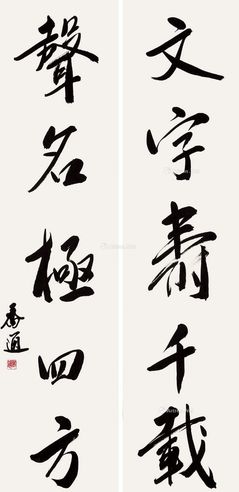 文字壽千載
聲名極四方